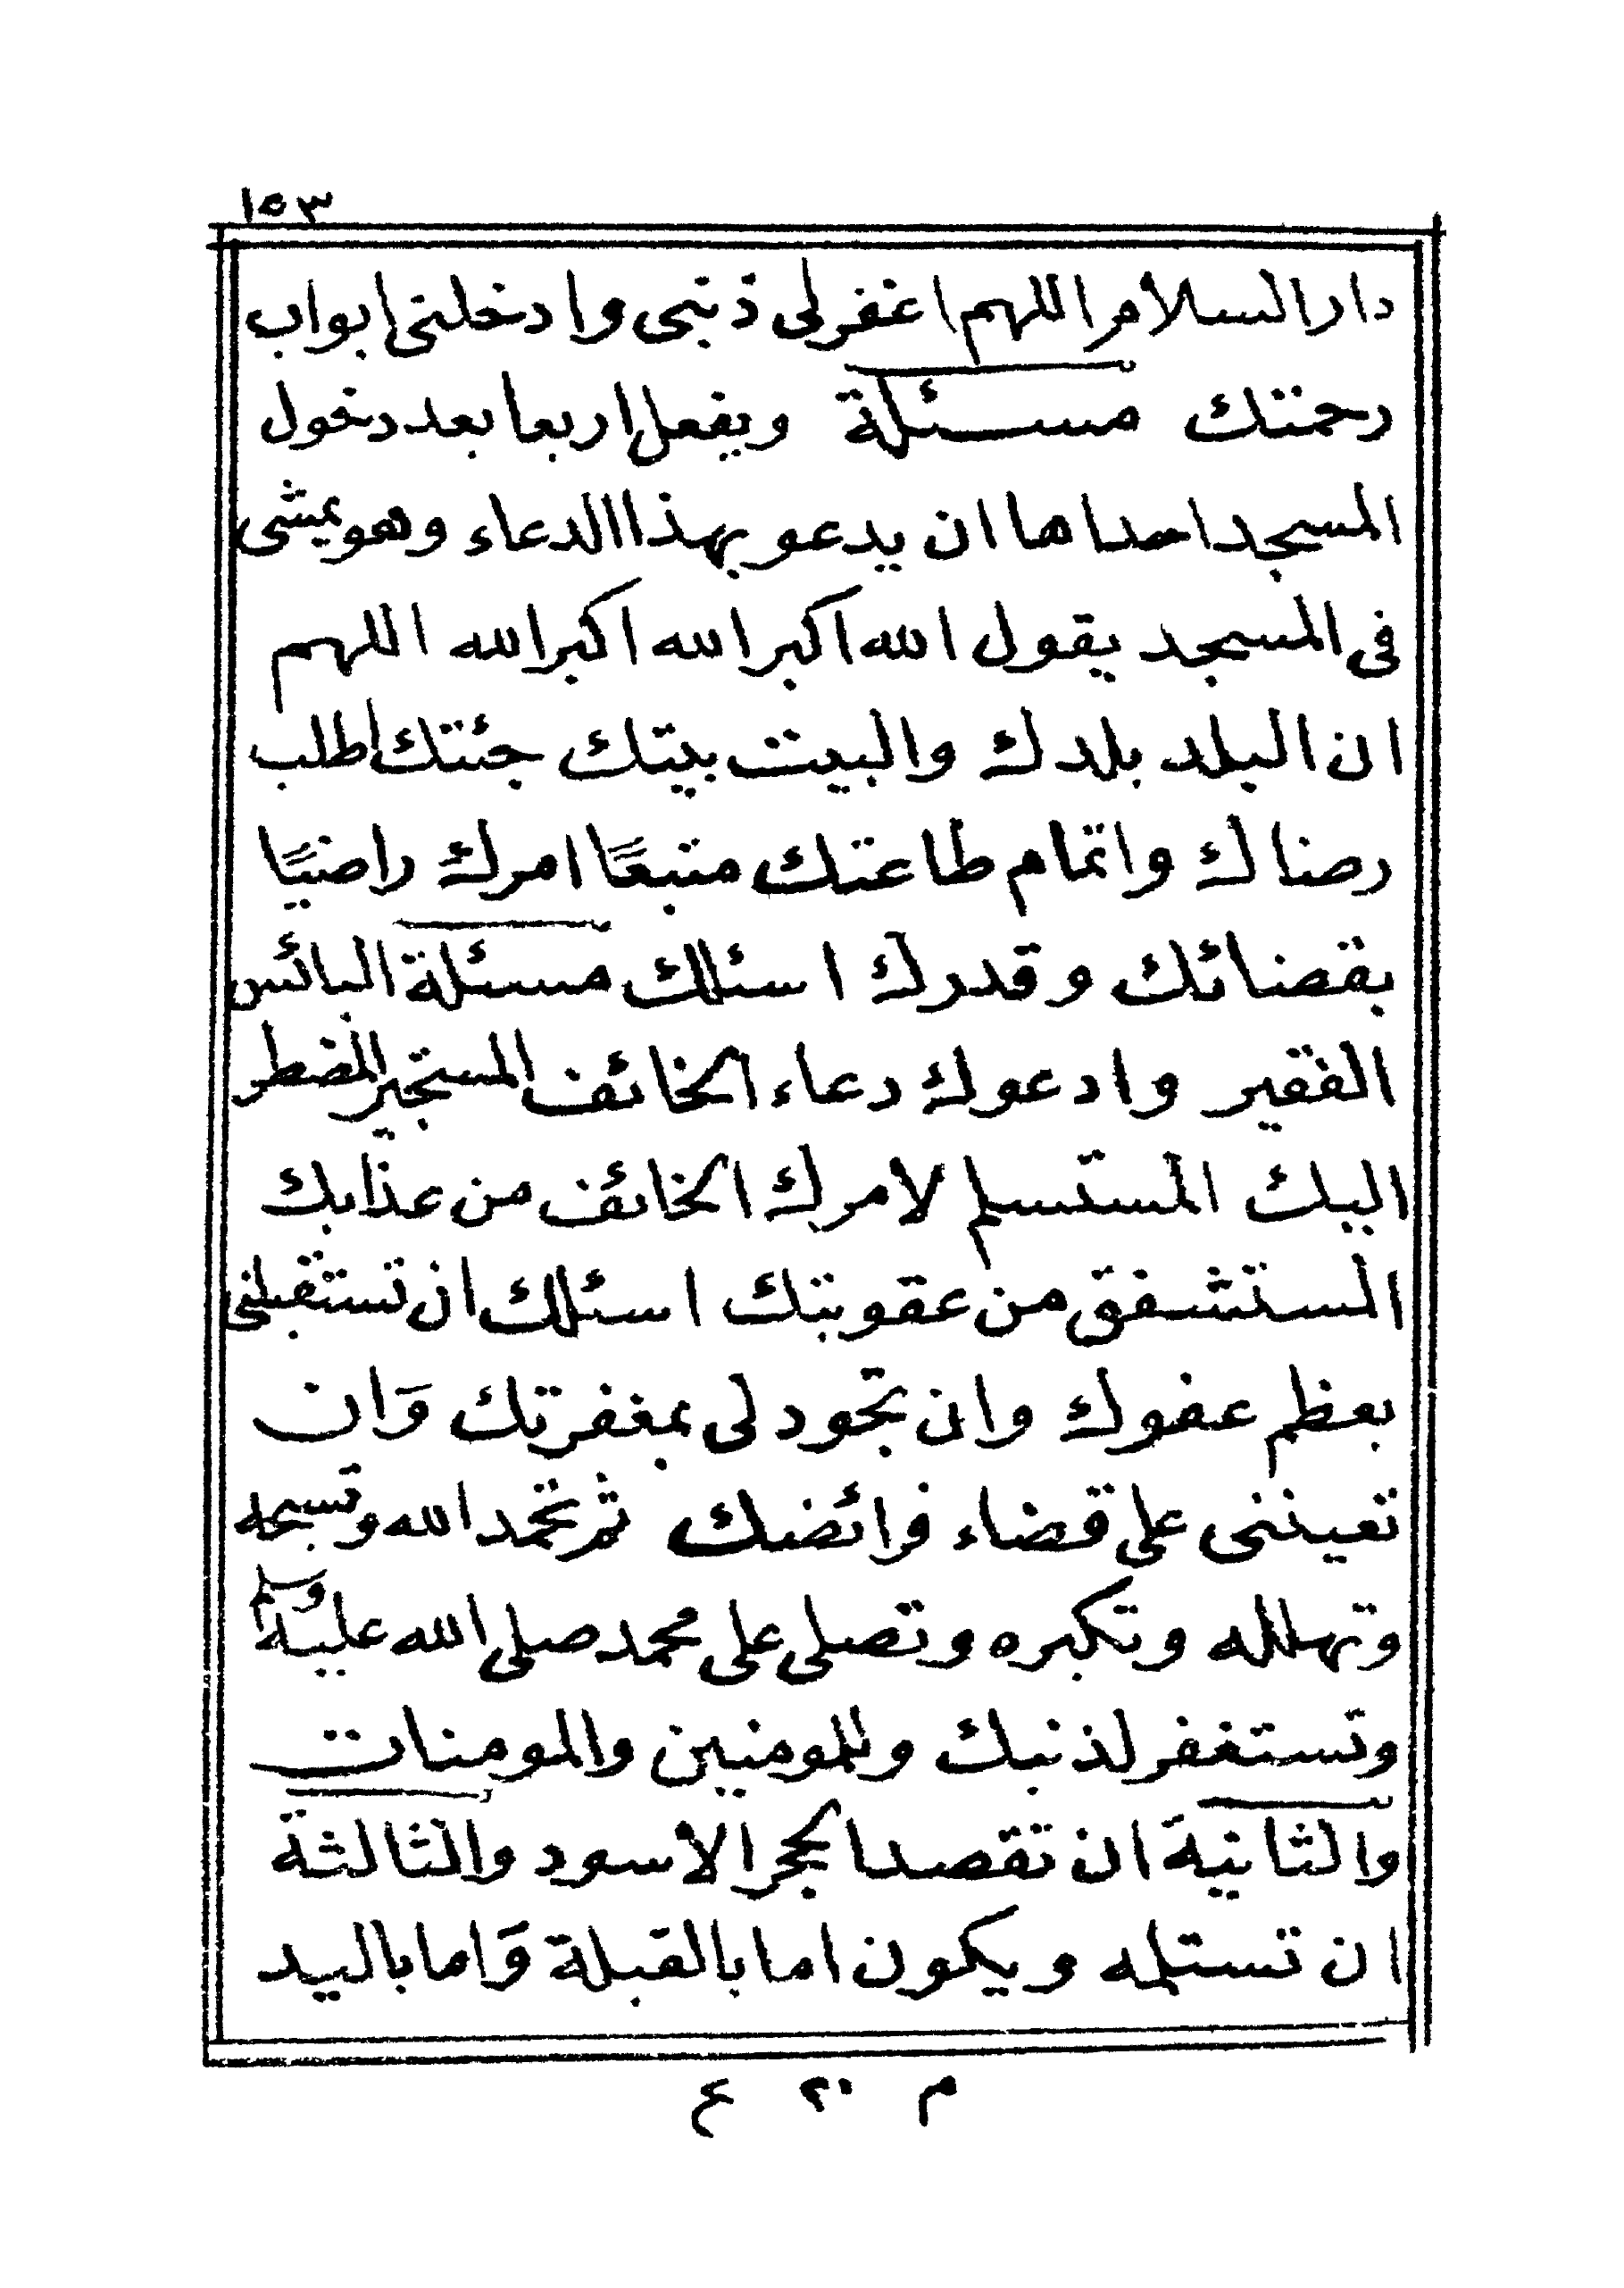 ١٥٣
دار السلام اللهم اغفر لى ذنبى وادخلنى ابواب
رحمتك مسئلة ويفعل اربعا بعد دخول
المسجد احداها ان يدعو بهذا الدعاء وهو يمشى
فى المسجد يقول الله اكبر الله اكبر الله اللهم
ان البلد بلدك والبيت بيتك جئتك اطلب
رضاك واتمام طاعتك متبعًا امرك راضيًا
بقضائك وقدرك اسئلك مسئلة البائس
الفقير وادعوك دعاء الخائف المستجير المضطر
اليك المستسلم لامرك الخائف من عذابك
المستشفق من عقوبتك اسئلك ان تستقبلنى
بعظم عفوك وان تجود لى بمغفرتك وَان
تعيننى على قضاء فرائضك ثم تحمد الله وتسبحه
وتهلله وتكبره وتصلى على محمد صلى الله عليه وسلم
وتستغفر لذنبك وللمومنين والمومنات
والثانيةَ ان تقصد الحجر الاسود والثالثة
ان تستلمه ويكون اما بالقبلة وَاما باليد
م ٢٠ ع